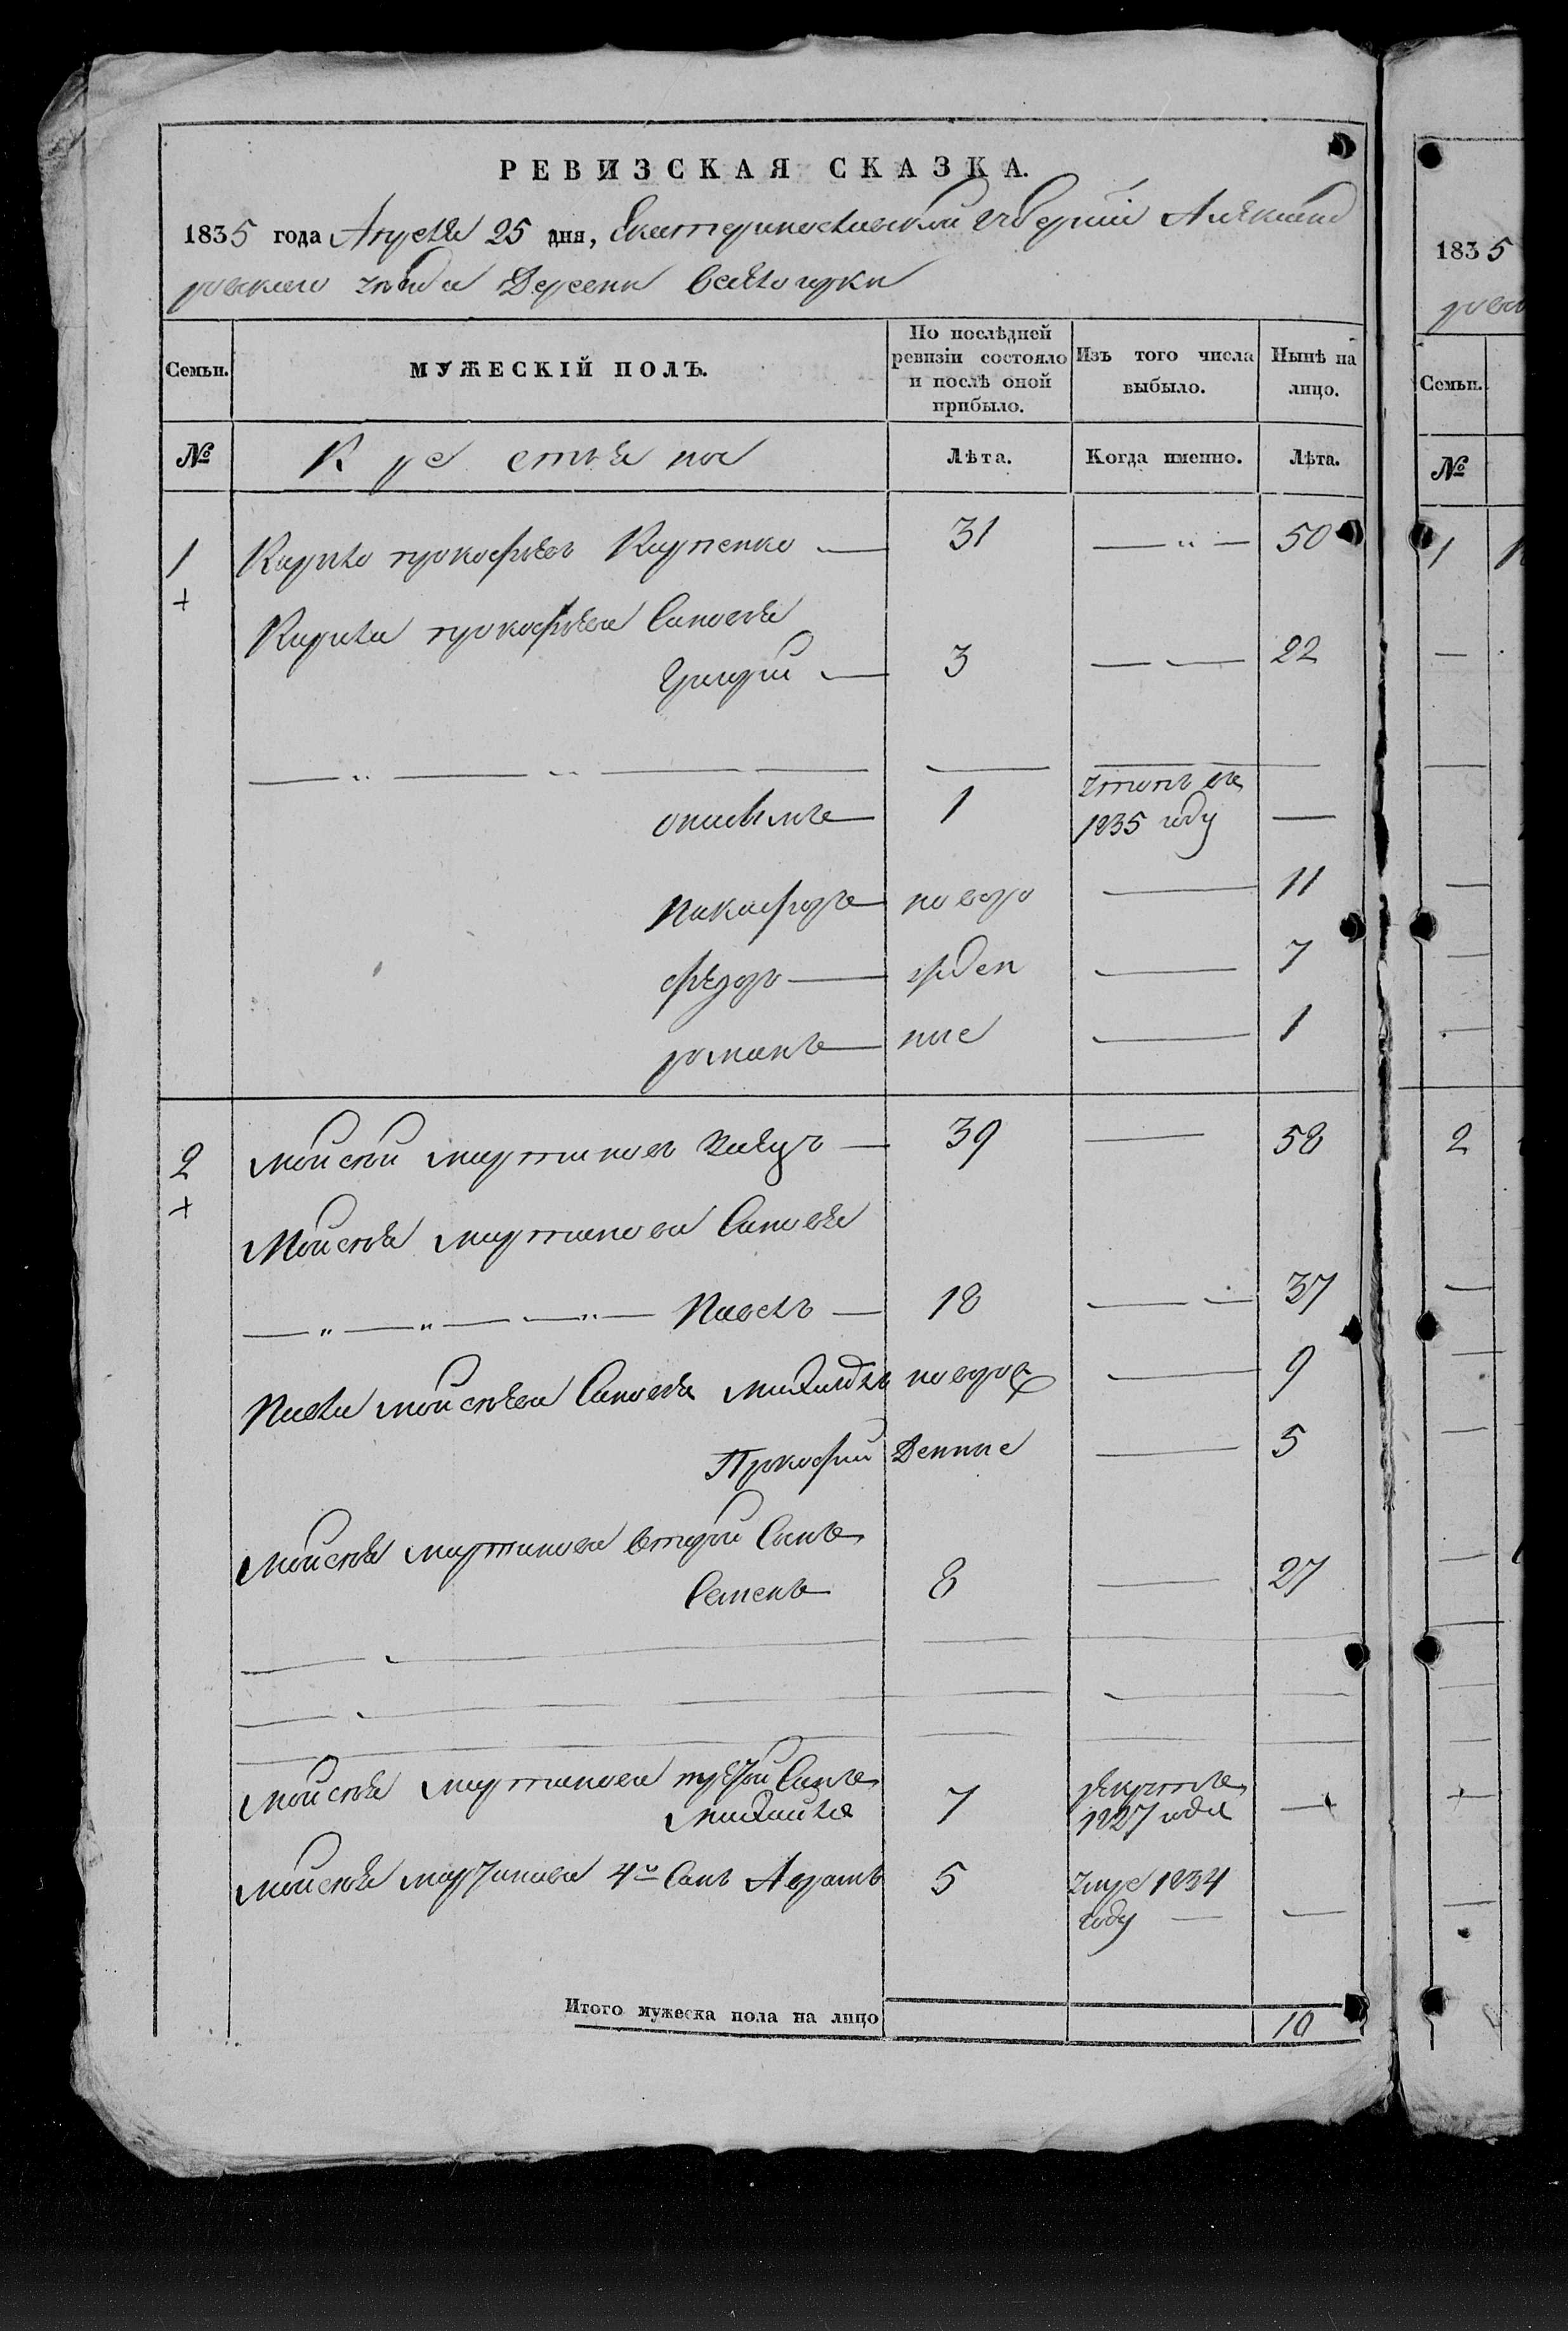 РЕВИЗСКАЯ СКАЗКА.
1835 года Апреля 25 дня, Екатеринославской губернии Александ
ровского уезда Деревни
Семьи. МУЖЕСКІЙ ПОЛЪ. По послѣдней ревизіи состояло и послѣ оной прибыло. Изъ того числа выбыло. Нынѣ на лицо.
№ Крестьяне Лѣта. Когда именно. Лѣта.
1 Кирило прокофьев Карпенко 31 50
Кирила прокофьева Сыновья
Григорий 3 22
1 1835 году
Никифоръ новоро 11
федоръ жден 7
романъ ные 1
2 Мойсей мартинов 39 58
Мойсея мартинова Сыновья
Павелъ 18 37
Павла мойсеева Сыновья новоро 9
Прокофий жденные 5
Мойсея мартинова второй Сынъ
Семенъ 8 27
Мойсея мартинова третий Сынъ
Михайла 7 1827 года
Мойсея мартинова 4й Сынъ 5 умре 1834
году
Итого мужеска пола на лицо 10
1835
Семьи.
№
1
2